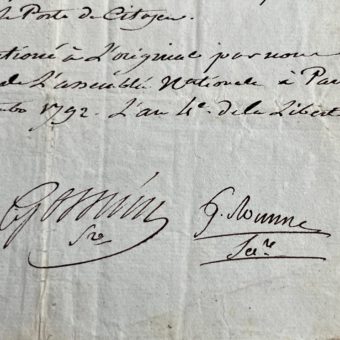 le Poste de Citoyen.
ationé à L'original par nous
de L'assemblée Nationale à Par
bre 1792. L'an 4e. de la Libert
Gosuin G. Romme
Sre Secre